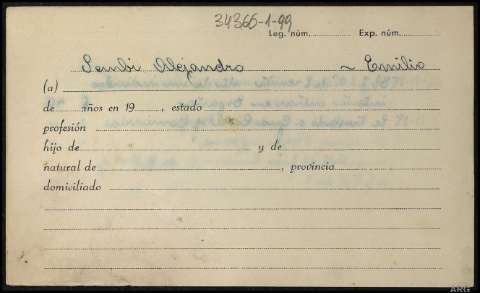 34366-1-99
Leg. núm. Exp. núm.
Sembi Alejandro ~ Emilio
(a)
de años en 19 , estado
profesión
hijo de y de
natural de , provincia
domiciliado